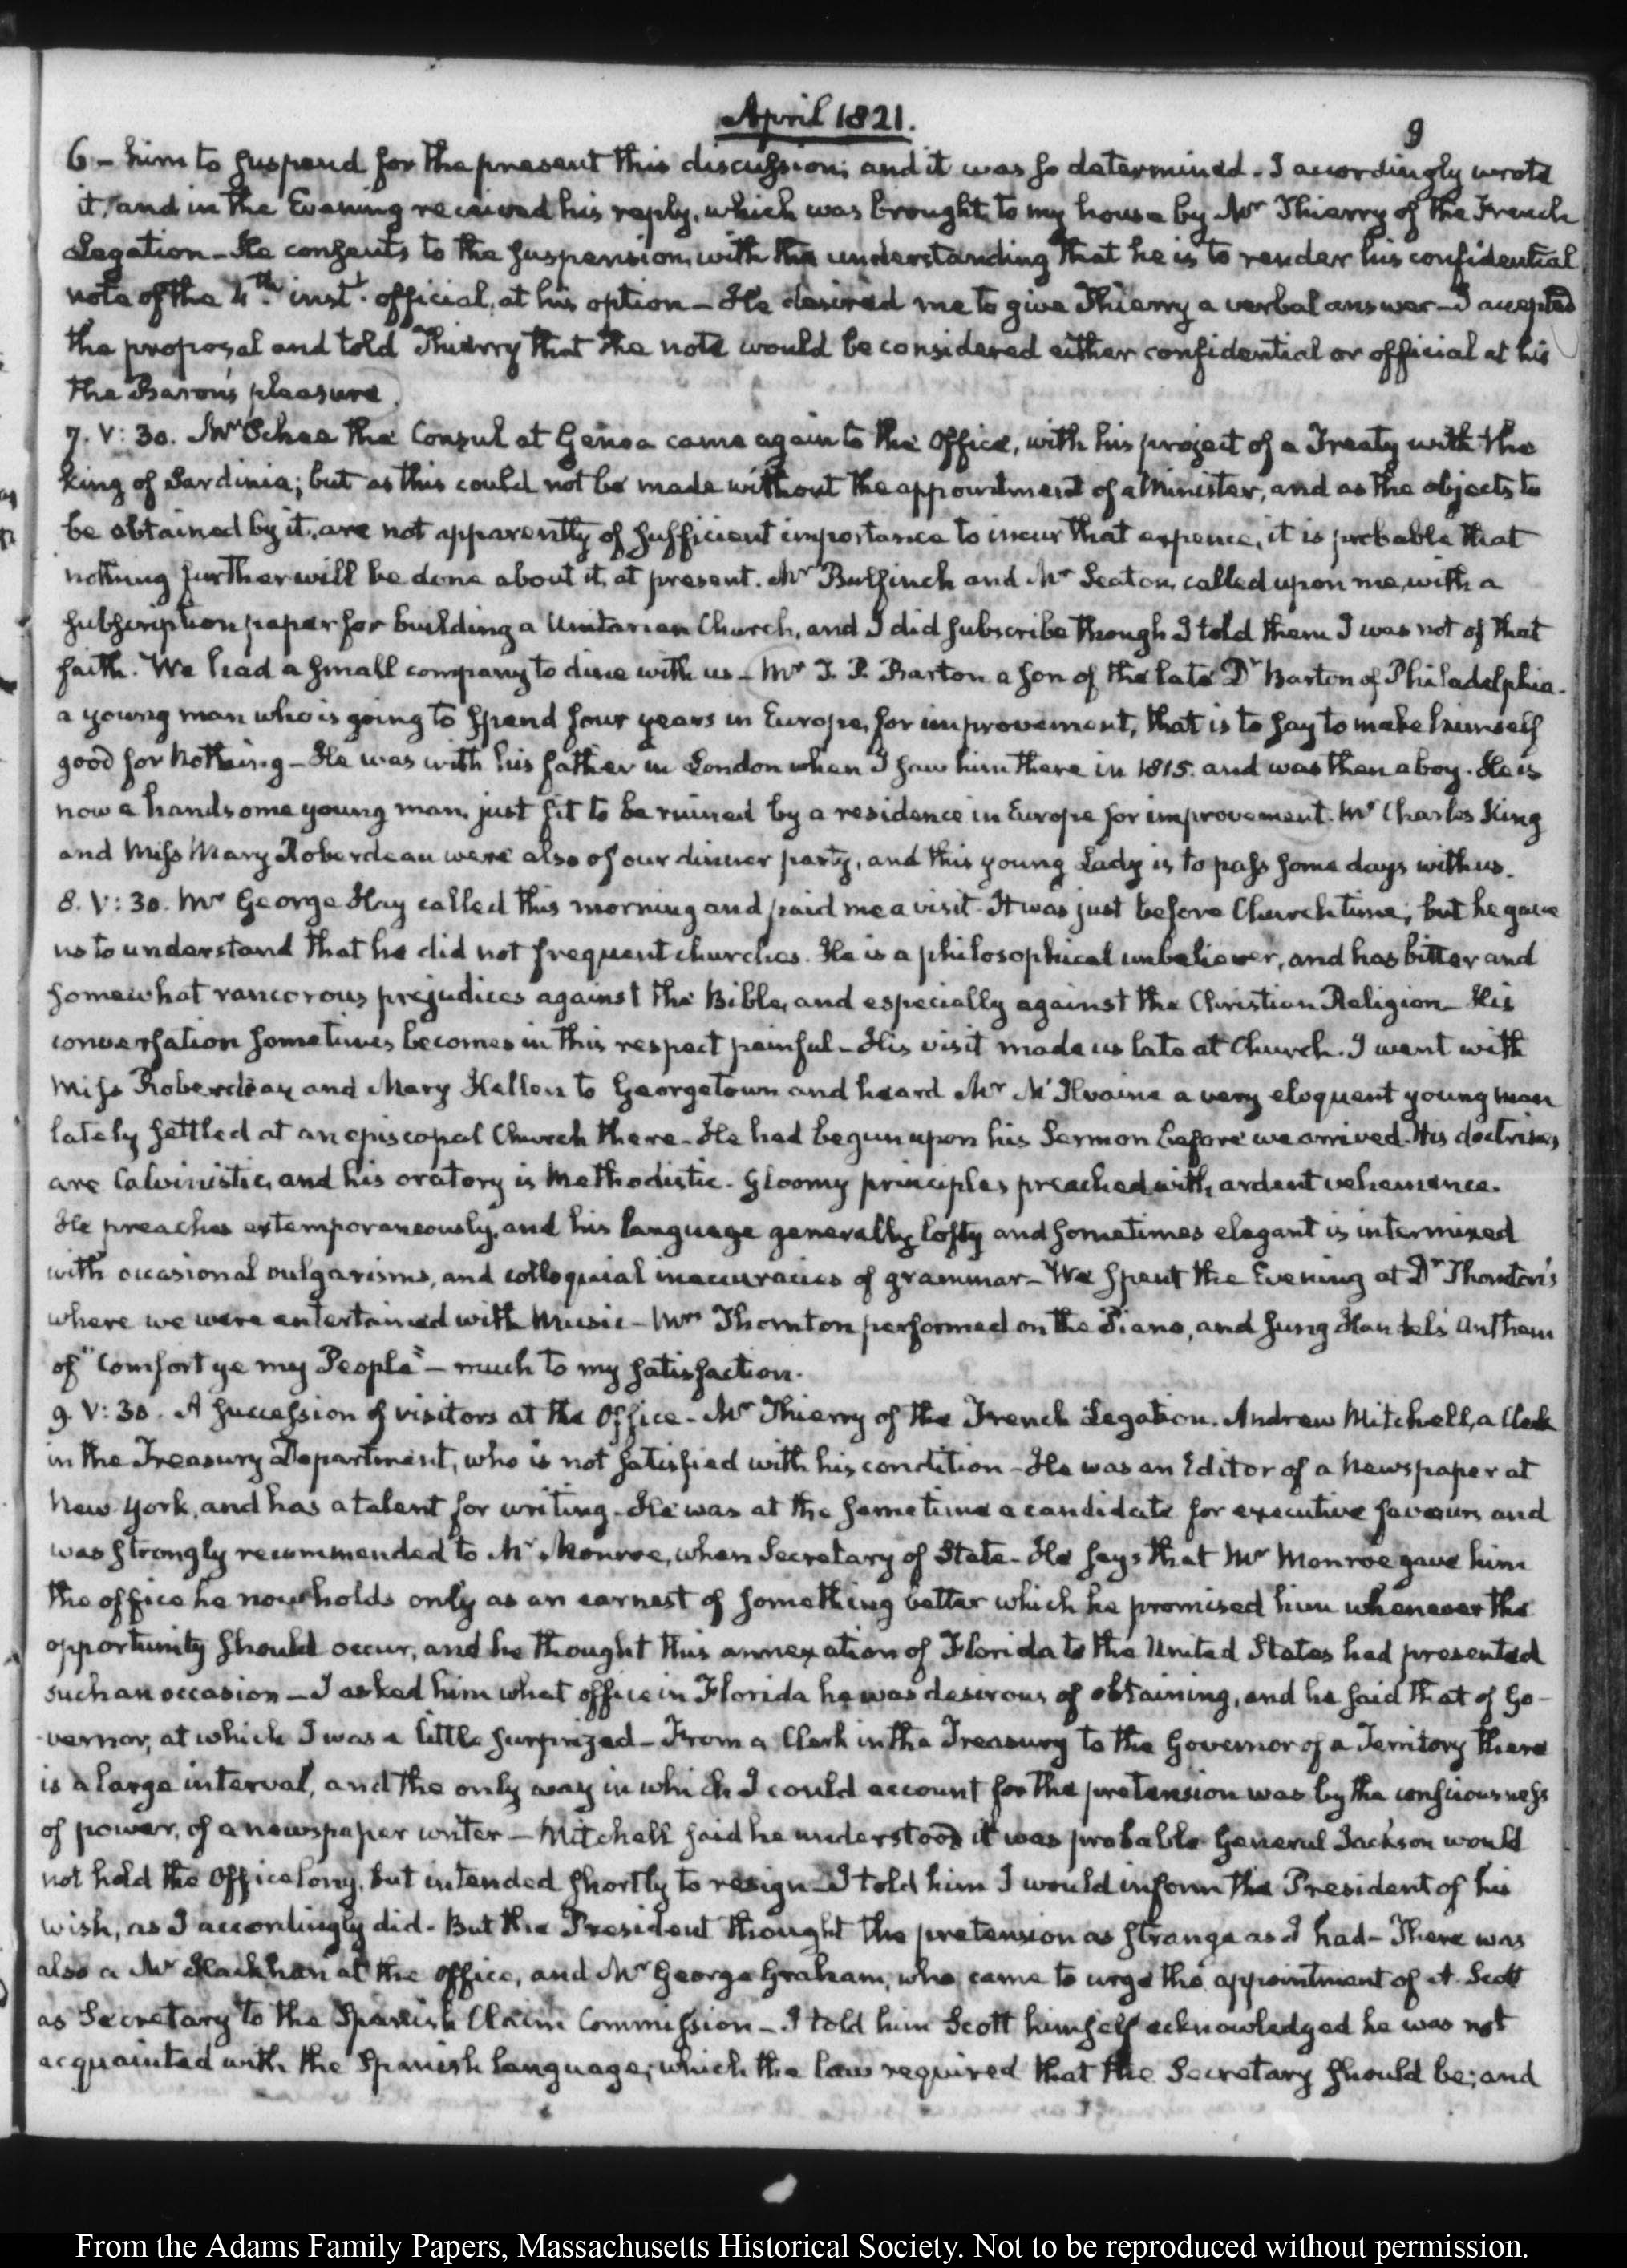 April 1821.
9
6 – him to suspend for the present this discussion; and it was so determined. I accordingly wrote
it, and in the Evening received his reply, which was brought to my house by Mr Thierry of the French
Legation – He consents to the suspension, with the understanding that he is to render his confidential
note of the 4th inst. official, at his option – He desired me to give Thierry a verbal answer – I accepted
the proposal and told Thierry that the note would be considered either confidential or official at his
the Baron's pleasure.
7. V: 30. Mr the Consul at Genoa came again to the Office, with his project of a Treaty with the
king of Sardinia; but as this could not be made without the appointment of a Minister, and as the objects to
be obtained by it, are not apparently of sufficient importance to incur that expence, it is probable that
nothing further will be done about it, at present. Mr Bulfinch and Mr Seaton, called upon me, with a
subscription paper for building a Unitarian Church, and I did subscribe though I told them I was not of that
faith. We had a small company to dine with us – Mr T. P. Barton a son of the late Dr Barton of Philadelphia.
a young man who is going to spend four years in Europe, for improvement, that is to say to make himself
good for nothing – He was with his father in London when I saw him there in 1815. and was then a boy. He is
now a handsome young man, just fit to be ruined by a residence in Europe for improvement. Mr Charles King
and Miss Mary Roberdeau were also of our dinner party, and this young Lady is to pass some days with us.
8. V: 30. Mr George Hay called this morning and paid me a visit. It was just before Church time; but he gave
us to understand that he did not frequent churches. He is a philosophical unbeliever, and has bitter and
somewhat rancorous prejudices against the Bible, and especially against the Christian Religion – His
conversation sometimes becomes in this respect painful – His visit made us late at Church. I went with
Miss Roberdeau and Mary Hellen to Georgetown and heard Mr McIlvaine a very eloquent young man
lately settled at an episcopal Church there – He had begun upon his Sermon before we arrived. His doctrines
are Calvinistic, and his oratory is Methodistic. Gloomy principles preached with ardent vehemence.
He preaches extemporaneously, and his language generally lofty and sometimes elegant is intermixed
with occasional vulgarisms, and colloquial inaccuracies of grammar – We spent the Evening at Dr Thornton's
where we were entertained with Music – Mrs Thornton performed on the Piano, and sung Handel's Anthem
of "Comfort ye my People" – much to my satisfaction.
9. V: 30. A succession of visitors at the Office – Mr Thierry of the French Legation. Andrew Mitchell, a Clerk
in the Treasury Department, who is not satisfied with his condition – He was an Editor of a Newspaper at
New York, and has a talent for writing. He was at the same time a candidate for executive favour, and
was strongly recommended to Mr Monroe, when Secretary of State – He says that Mr Monroe gave him
the office he now holds only as an earnest of something better which he promised him whenever the
opportunity should occur, and he thought this annexation of Florida to the United States had presented
such an occasion – I asked him what office in Florida he was desirous of obtaining, and he said that of Go-
-vernor, at which I was a little surprized – From a Clerk in the Treasury to the Governor of a Territory there
is a large interval, and the only way in which I could account for the pretension was by the consciousness
of power, of a newspaper writer – Mitchell said he understood it was probable General Jackson would
not hold the Office long, but intended shortly to resign – I told him I would inform the President of his
wish, as I accordingly did. But the President thought the pretension as strange as I had – There was
also a Mr at the office, and Mr George Graham, who came to urge the appointment of A. Scott
as Secretary to the Spanish Claim Commission – I told him Scott himself acknowledged he was not
acquainted with the Spanish language; which the law required that the Secretary should be; and
From the Adams Family Papers, Massachusetts Historical Society. Not to be reproduced without permission.